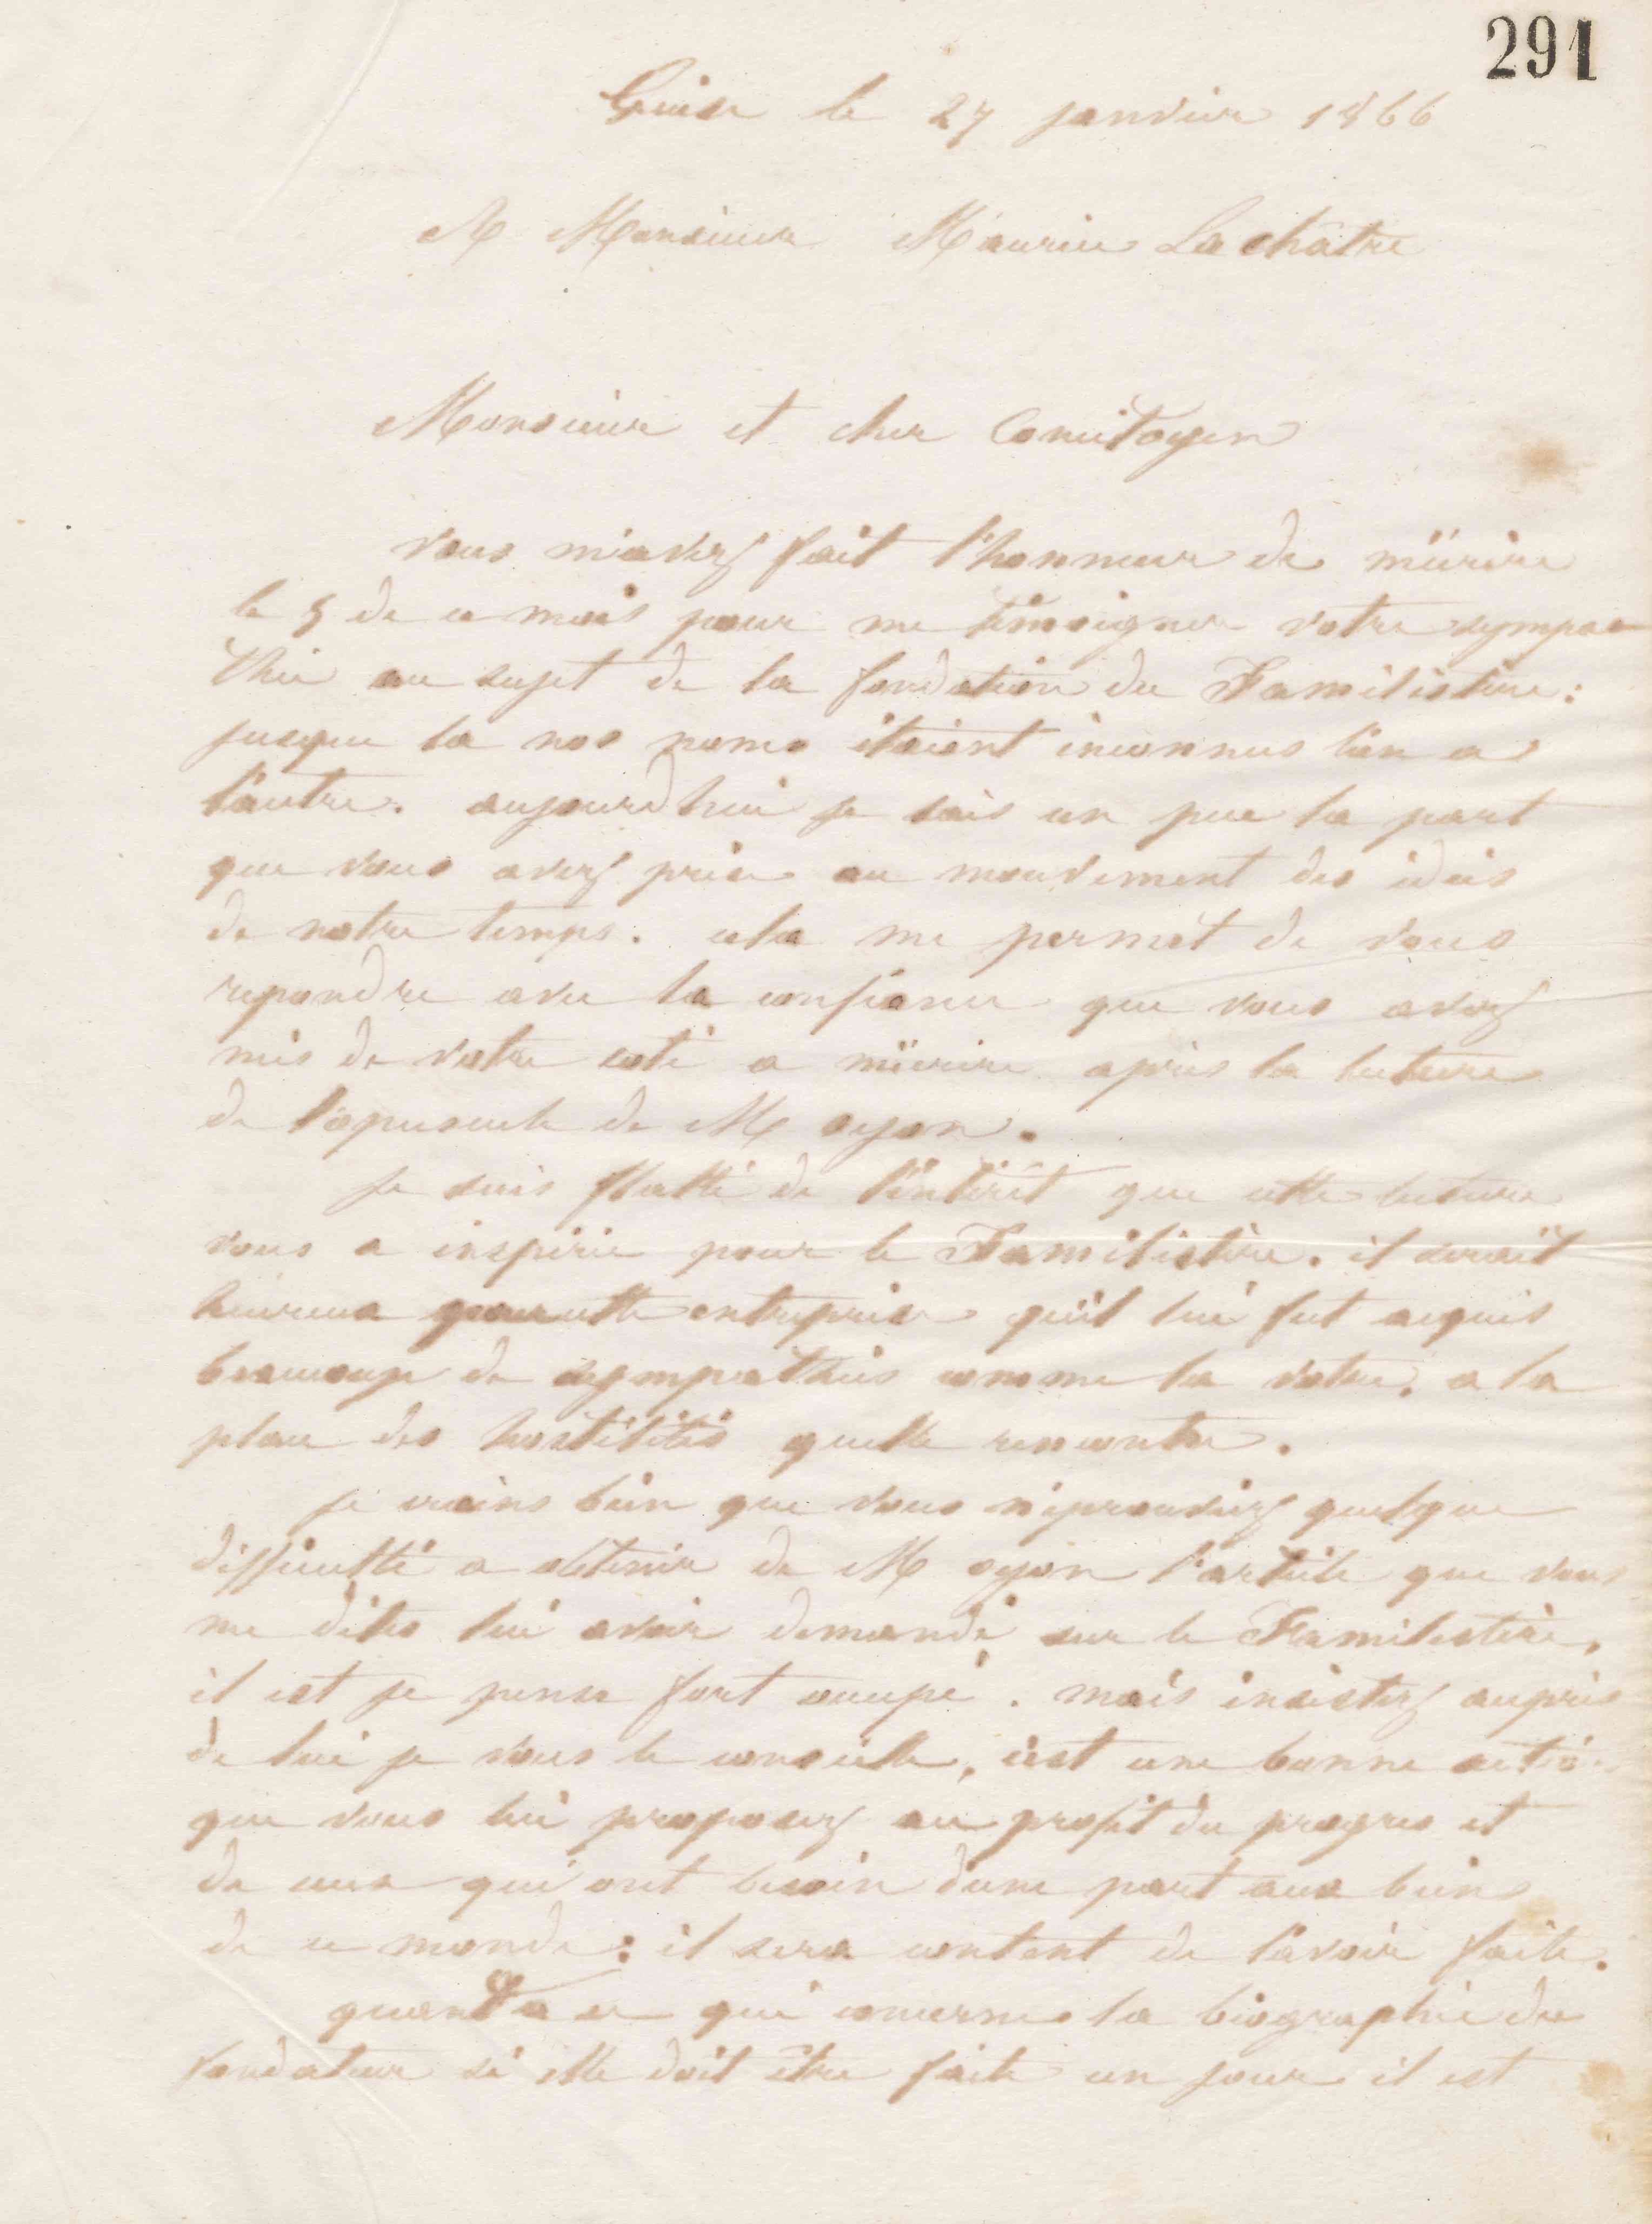 291
Guise le 27 janvier 1866
A Monsieur Maurice Lachâtre
Monsieur et cher Concitoyen
vous m'avez fait l'honneur de m'écrire
le 5 de ce mois pour me témoigner votre sympa
thie au sujet de la fondation du Familistère :
jusque la nos noms étaient inconnus l'un a
l'autre. aujourd'hui je sais un peu la part
que vous avez prise au mouvement des idées
de notre temps. cela me permet de vous
repondre avec la confiance que vous avez
mis de votre coté a m'écrire après la lecture
de l'opuscule de M oyon.
je suis flatté de l'intérêt que cette lecture
vous a inspirée pour le Familistère. il serait
heureux pour cette entreprise qu'il lui fut acquis
beaucoup de sympathies comme la votre, a la
place des hostilités quelle rencontre.
je crains bien que vous n'éprouviez quelque
difficulté a obtenir de M oyon l'article que vous
me dites lui avoir demandé sur le Familistère,
il est je pense fort occupé. mais insistez auprès
de lui je vous le conseille, c'est une bonne action
que vous lui proposez au profit du progres et
de ceux qui ont besoin d'une part aux biens
de ce monde : il sera content de l'avoir faite.
quand a ce qui concerne la biographie du
fondateur si elle doit être faite un jour il est